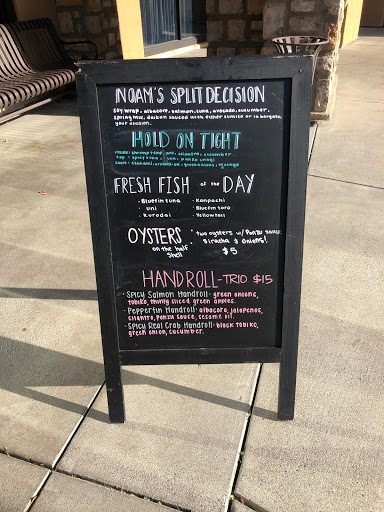 NOAM'S SPLIT DECISION
Soy wrap, albacore, salmon, tuna, avocado, cucumber,
spring mix, daikon sauced with either sunrise or la bergata
your decision.
HOLD ON TIGHT
inside: shrimp temp, cilantro, cucumber
top: spicy tuna, uni
sauce: green onions, masago
FRESH FISH of the DAY
· Bluefin tuna · Kanpachi
· Uni · Bluefin toro
· Kurodai · Yellowtail
OYSTERS · two oysters w/ Ponzu sauce
on the half siracha & onions!
shell $5
HANDROLL-TRIO $15
· Spicy Salmon Handroll: green onions,
tobiko, thinly sliced green apples.
· Peppertin Handroll: albacore, jalapenos,
cilantro, ponzu sauce, sesame oil.
· Spicy Real Crab Handroll: black tobiko,
green onion, cucumber.